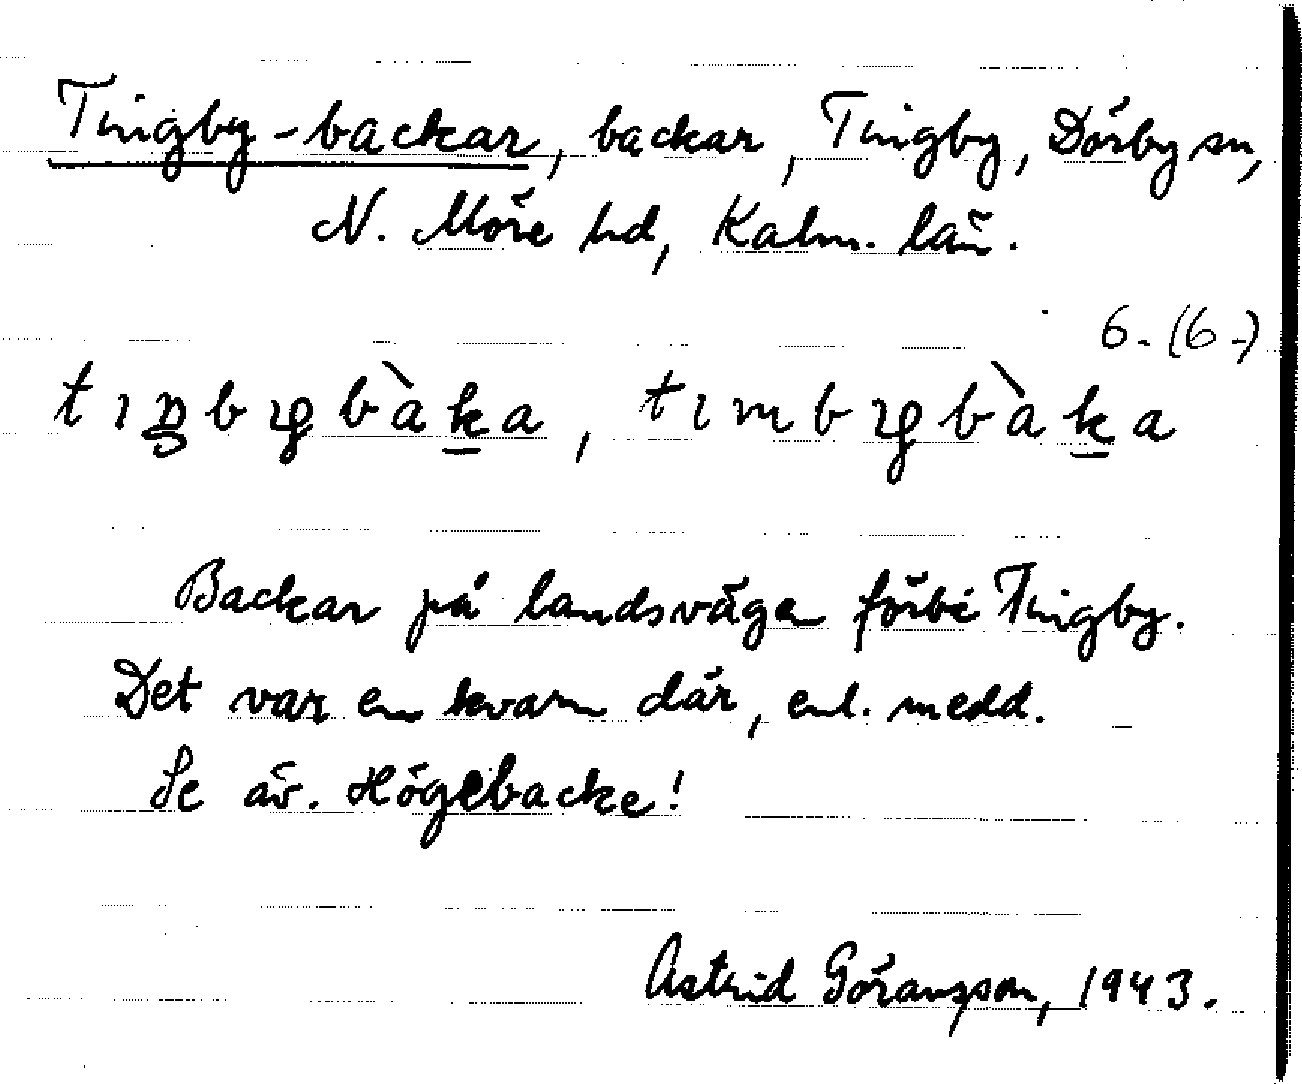 Tingby-backar, backar, Tingby, Dörby sn,
N. Möre hd, Kalm. län.
6-(6-)
tıŋbybàka, tımbybàka
Backar på landsvägen förbi Tingby.
Det var en kvarn där, enl. medd.
Se äv. Högebacke!
Astrid Göransson, 1943.